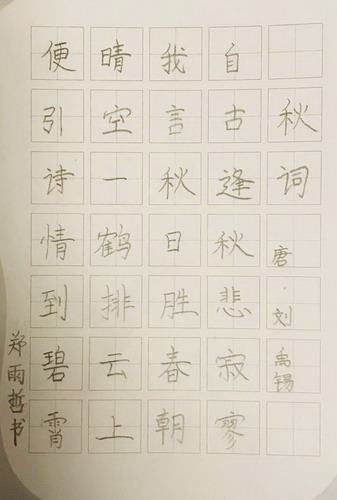 秋词
唐·刘禹锡
自古逢秋悲寂寥
我言秋日胜春朝
晴空一鹤排云上
便引诗情到碧霄
郑雨哲书